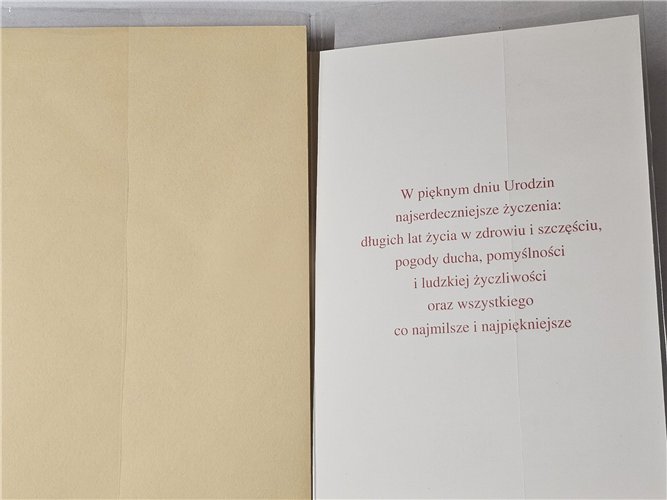 W pięknym dniu Urodzin
najserdeczniejsze życzenia:
długich lat życia w zdrowiu i szczęściu,
pogody ducha, pomyślności
i ludzkiej życzliwości
oraz wszystkiego
co najmilsze i najpiękniejsze